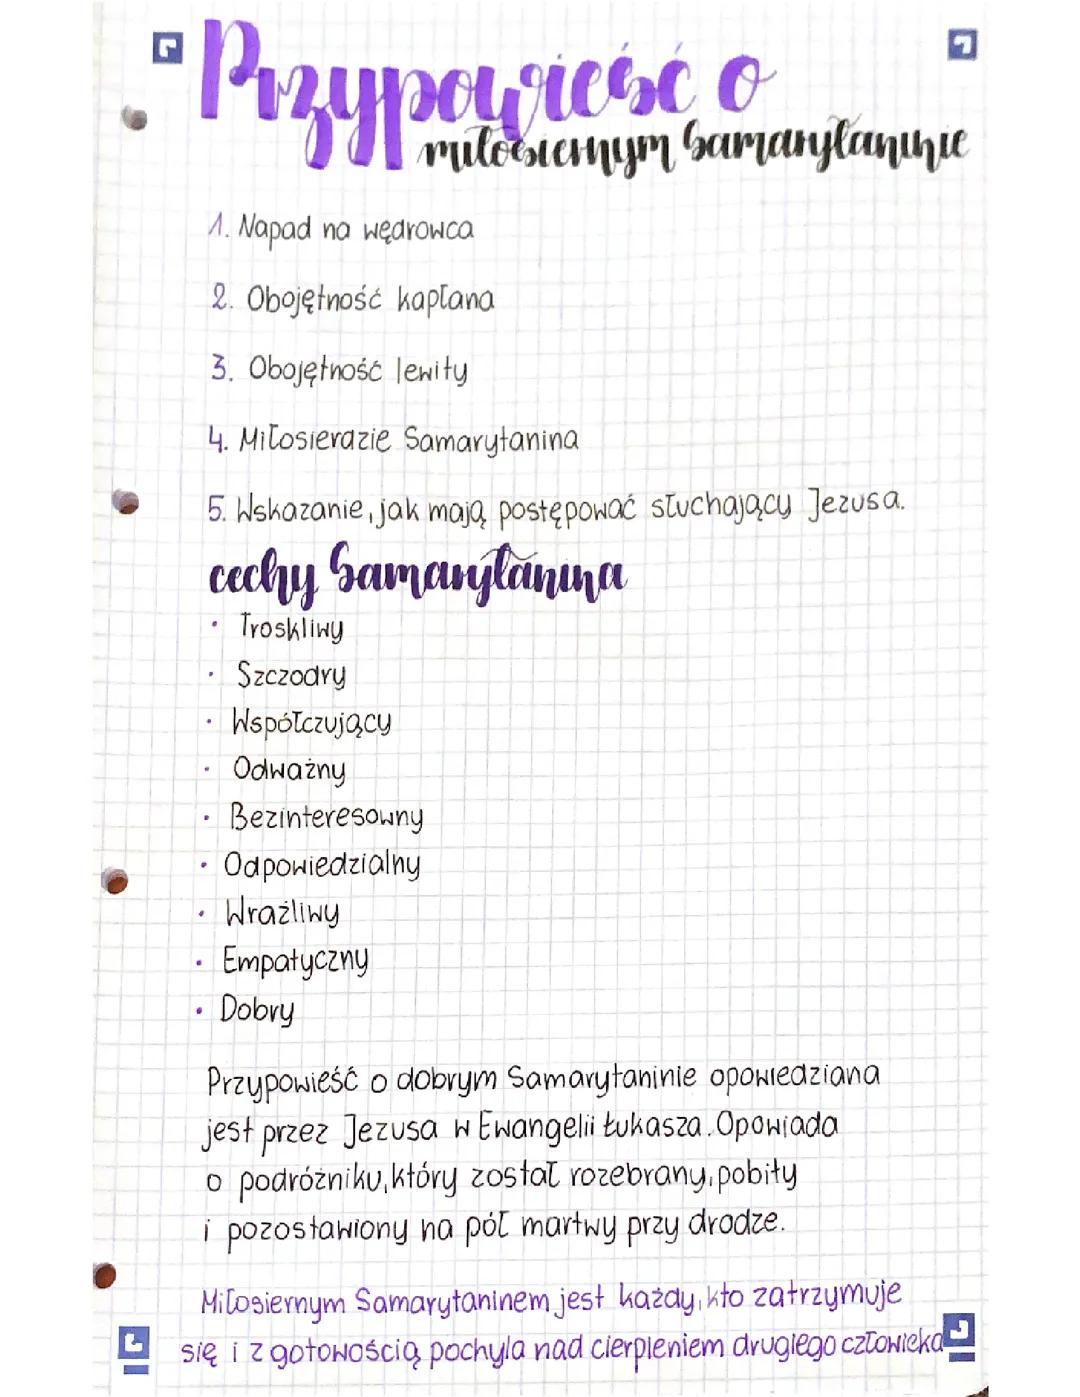 Przypowieść o
miłosiernym Samarytaninie
1. Napad na wędrowca
2. Obojętność kapłana
3. Obojętność lewity
4. Miłosierdzie Samarytanina
5. Wskazanie, jak mają postępować słuchający Jezusa.
cechy Samarytanina
• Troskliwy
• Szczodry
• Współczujący
• Odważny
• Bezinteresowny
• Odpowiedzialny
• Wrażliwy
• Empatyczny
• Dobry
Przypowieść o dobrym Samarytaninie opowiedziana
jest przez Jezusa w Ewangelii Łukasza. Opowiada
o podróżniku, który został rozebrany, pobity
i pozostawiony na pół martwy przy drodze.
Miłosiernym Samarytaninem jest każdy, kto zatrzymuje
się i z gotowością pochyla nad cierpieniem drugiego człowieka